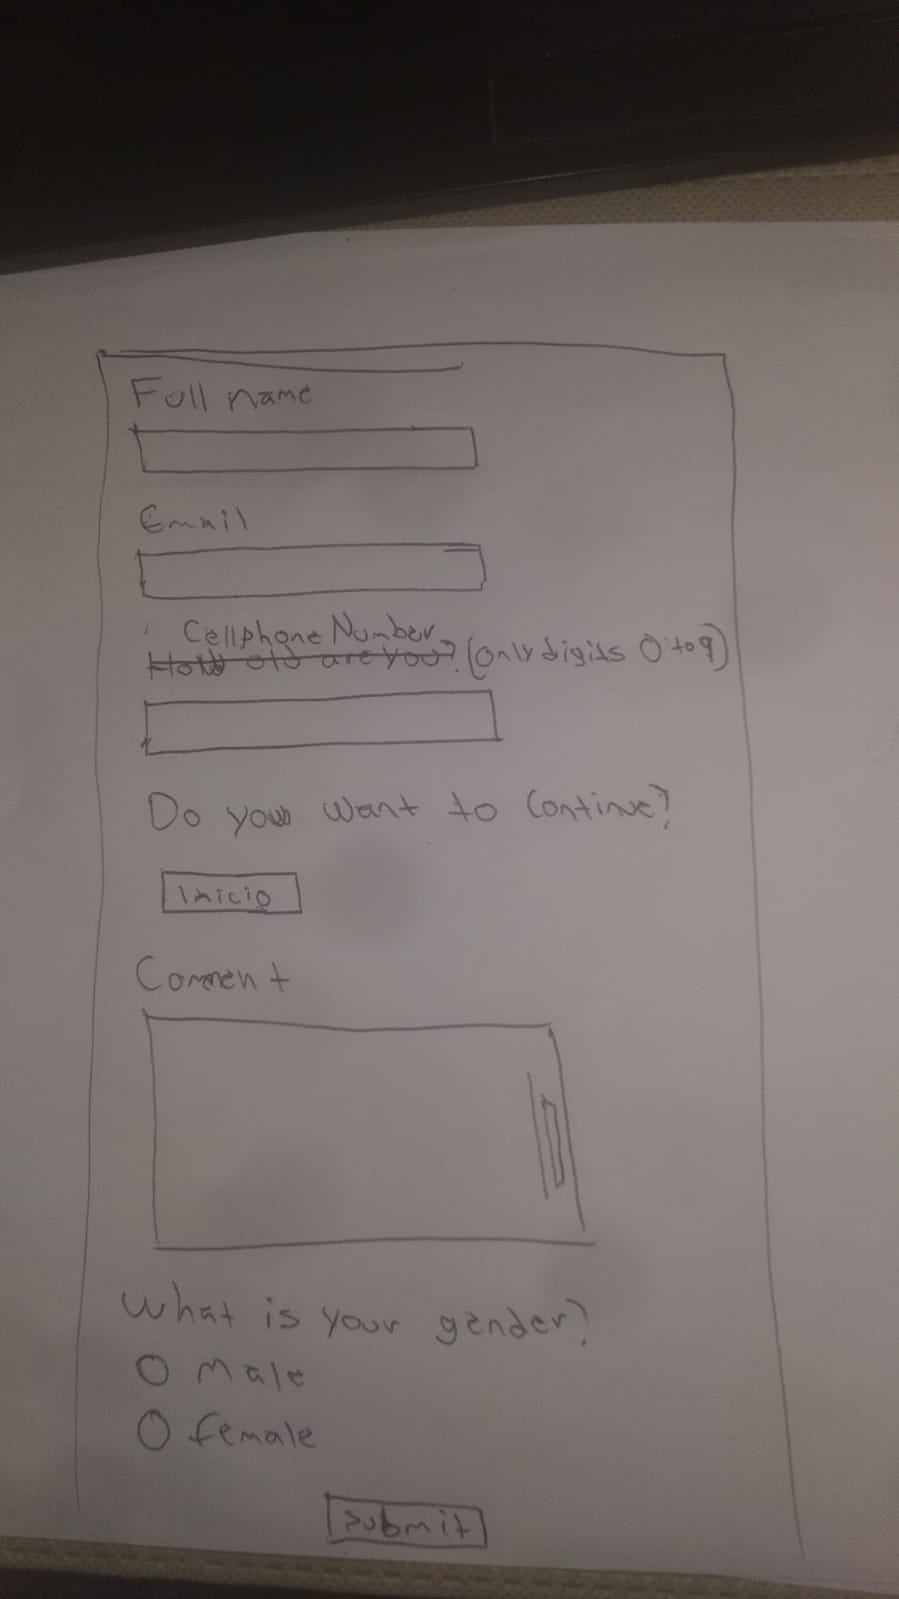 Full name
Email
Cellphone Number
How old are you? (only digits 0 to 9)
Do you want to continue?
Inicio
Comment
What is your gender?
Male
female
submit